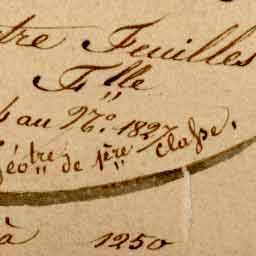 tre Feuilles
F.lle
au N.o 1827
Géotre de 1ère Classe.
à 1250